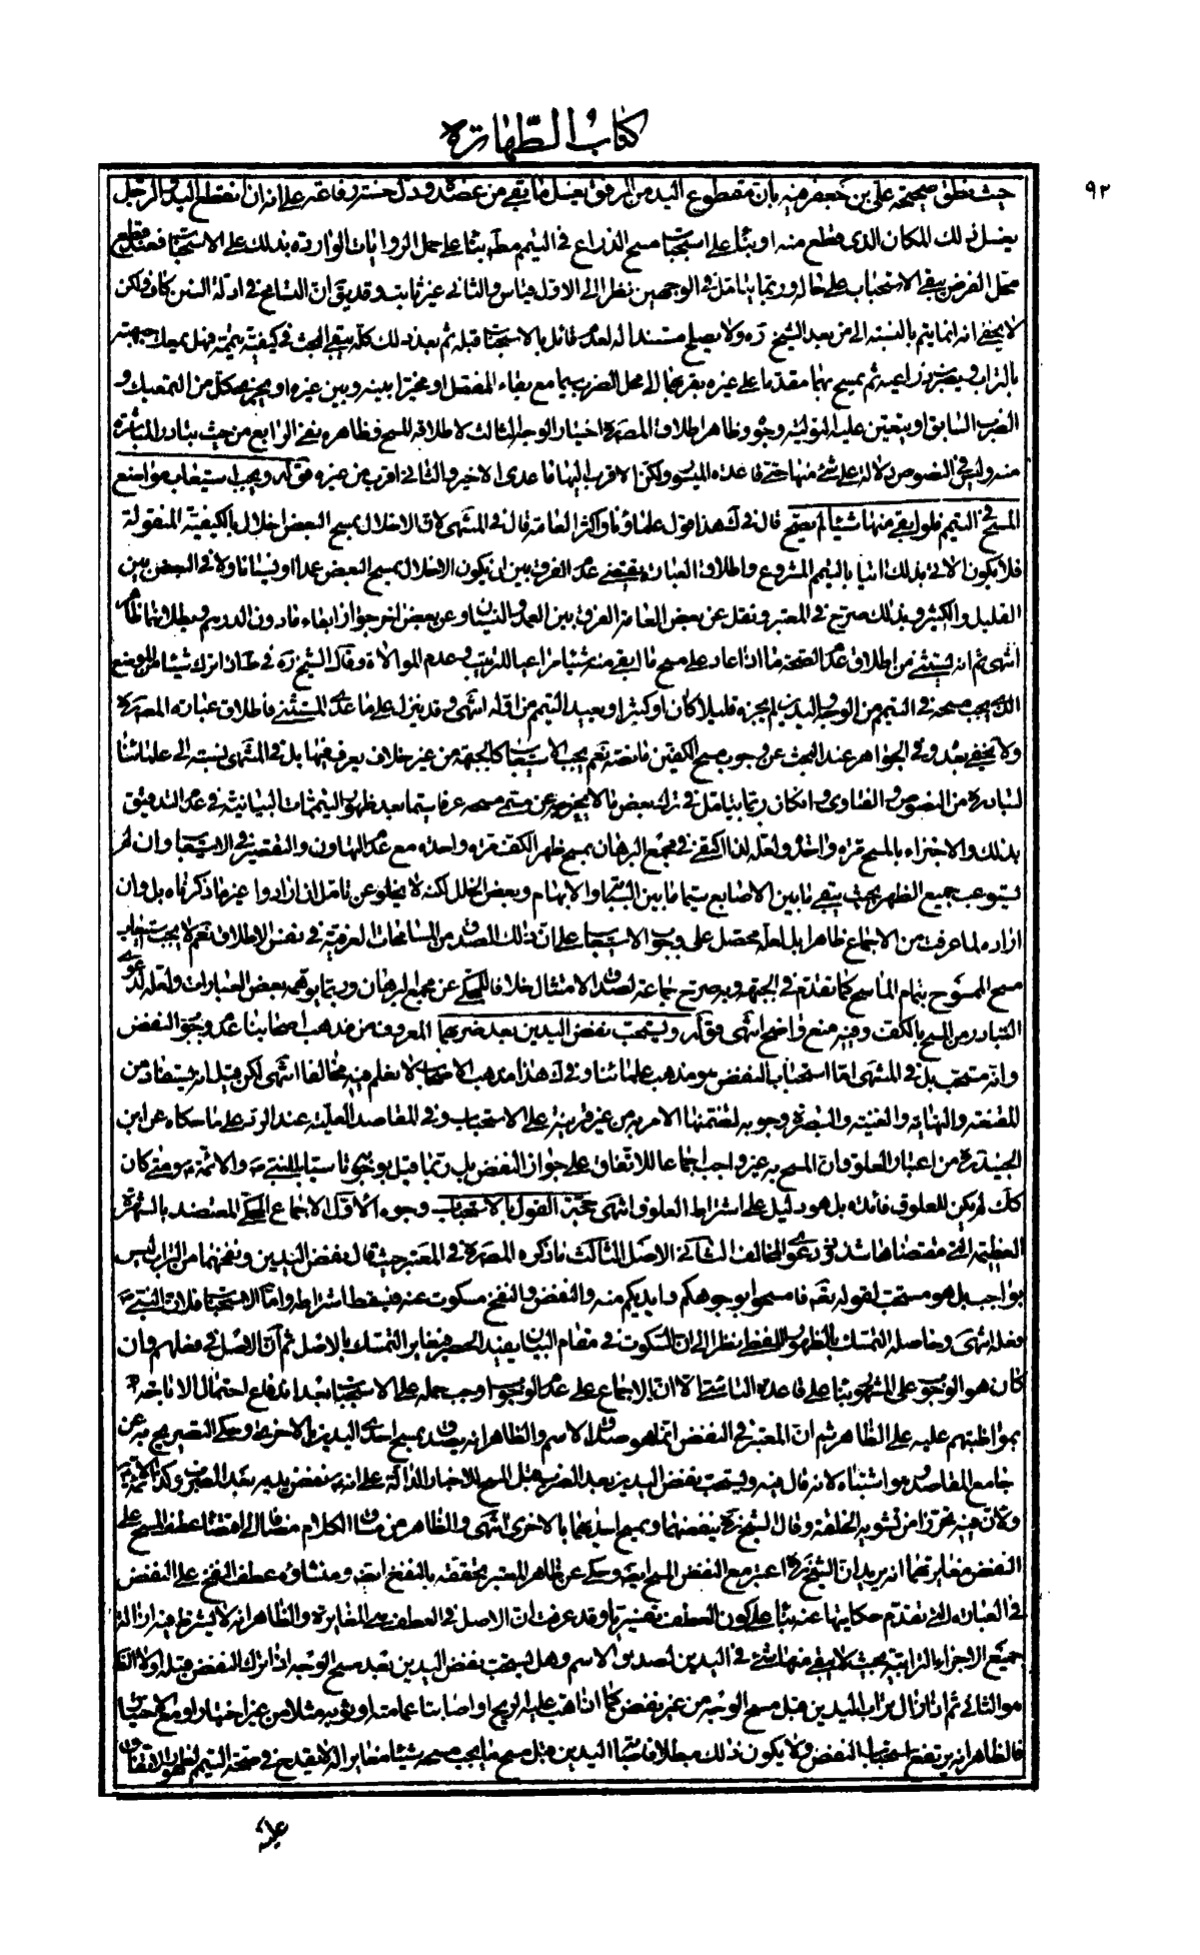 كتاب الطهارة
٩٢
حيث نطق صحيحة علي بن جعفر منه بان مقطوع اليد من المرفق يغسل ما بقي من عضده ودل حسنة رفاعة على انه ان انقطع اليد والرجل
يغسل ذلك المكان الذي قطع منه او بناء على استحباب مسح الذراع في التيمم مطم بناء على حمل الروايات الواردة بذلك على الاستحباب فعند قطع
محل الفرض يبقى الاستحباب على حاله وربما يتامل في الوجهين نظرا الى الاول قياس والثاني غير ثابت وقد يق ان التسامح في ادلة السنن كاف ولكن
لا يخفى انه انما يتم بالنسبة الى من بعد الشيخ ره ولا يصلح مستندا له لعدم قائل بالاستحباب قبله ثم بعد ذلك كله يبقى البحث في كيفية تيممه فهل يمعك جبهته
بالتراب او يضرب ذراعيه ثم يمسح بهما مقدما على غيره بقربهما الى محل الضرب سيما مع بقاء المفصل او مخيرا بينه وبين غيره او يجزيه كل من التمعيك و
الضرب السابق او يتعين عليه التولية وجوه وظاهر اطلاق المصره اختيار الوجه الثالث لاطلاقه المسح وظاهره نفي الرابع من حيث تبادر المباشرة
منه وليس في النصوص دلالة على شئ منها حتى قاعدة الميسور ولكن الاقرب اليها ما عدى الاخير والثاني اقرب من غيره قوله ويجب استيعاب مواضع
المسح في التيمم فلو ابقى منها شيئا لم يصح قال في ك هذا قول علمائنا واكثر العامة قال في المنتهى لان الاخلال بمسح البعض اخلال بالكيفية المنقولة
فلا يكون الاتي بذلك اتيا بالتيمم المشروع واطلاق العبارة يقتضي عدم الفرق بين ان يكون الاخلال بمسح البعض عمدا او نسيانا ولا في البعض بين
القليل والكثير وبذلك صرح في المعتبر ونقل عن بعض العامة الفرق بين العمد والنسيان وعن بعض اخر جواز ابقاء ما دون الدرهم وبطلانهما ظاهر
انتهى ثم انه يستثنى من اطلاق عدم الصحة ما اذا عاد على مسح ما ابقى منه شيئا مراعيا للترتيب وعدم الموالاة وقال الشيخ ره في ط اذا ترك شيئا من الموضع
الذي يجب مسحه في التيمم من الوجه واليدين لم يجزه قليلا كان او كثيرا ويعيد التيمم من اوله انتهى وقد ينزل على ما عدى المستثنى فاطلاق عبارة المصره
ولا يخفى بعده وفي الجواهر عند البحث عن وجوب مسح الكفين ما نصه نعم يجب الاستيعاب كالجبهة من غير خلاف يعرف فيهما بل في المنتهى نسبته الى علمائنا
لتبادره من النصوص والفتاوى وان كان ربما يتامل في ترك بعض ما لا يخرجه عن مسمى مسحه عرفا سيما بعد ظهور التيممات البيانية في عدم التدقيق
بذلك والاجتزاء بالمسح مرة واحدة ولعله لذا اكتفى في مجمع البرهان بمسح ظهر الكف مرة واحدة مع عدم التهاون والتقصير في الاستيعاب وان لم
يستوعب جميع الظهر بحيث يبقى ما بين الاصابع سيما ما بين السبابة والابهام وبعض الخلل لكنه لا يخلو عن تامل ان ارادوا غير ما ذكرناه بل وان
اراده لما عرفت من الاجماع ظاهرا بل لعله محصل على وجوب الاستيعاب على ان ذلك الصدق من المسامحات العرفية في نفس الاطلاق نعم لا يجب استيعاب
مسح الممسوح بتمام الماسح كما تقدم في الجبهة وبه صرح جماعة لصدق الامتثال خلافا للمحكي عن مجمع البرهان وربما يوهمه بعض العبارات ولعله لدعوى
التبادر من المسح بالكف وفيه منع واضح انتهى قوله ويستحب نفض اليدين بعد ضربهما المعروف من مذهب اصحابنا عدم وجوب النفض
وانه مستحب بل في المنتهى اما استحباب النفض هو مذهب علمائنا وفي ك هذا مذهب الاصحاب لا نعلم فيه مخالفا انتهى لكن قيل انه يستفاد من
المقنعة والنهاية والغنية والتبصرة وجوبه لتضمنها الامر به من غير قرينة على الاستحباب وفي المقاصد العلية عند الرد على ما حكاه عن ابن
الجنيد ره من اعتبار العلوق وان المسح به غير واجب اجماعا للاتفاق على جواز النفض بل ربما قيل بوجوبه تاسيا بالنبي ص والائمة ع ومتى كان
كك لم يكن للعلوق فائدة بل هو دليل على اشتراط العلو انتهى حجة القول بالاستحباب وجوه الاول الاجماع المحكي المعتضد بالشهرة
العظيمة التي مقتضاها شذوذ دعوى المخالف الثاني الاصل الثالث ما ذكره المصره في المعتبر حيث قال نفض اليدين ونفخهما من التراب ليس
بواجب بل هو مستحب لقوله تعم فامسحوا بوجوهكم وايديكم منه والنفض والنفخ مسكوت عنه فيسقط اشتراطه واما الاستحباب فلان النبي ص
فعله انتهى وحاصله التمسك بالظهور اللفظي نظرا الى ان السكوت في مقام البيان يفيد الحصر فيغاير التمسك بالاصل ثم ان الاصل في فعلهم وان
كان هو الوجوب على المشهور بناء على قاعدة التاسي الا ان الاجماع على عدم الوجوب اوجب حمله على الاستحباب بعد اندفاع احتمال الاباحة
بمواظبتهم عليه على الظاهر ثم ان المعتبر في النفض انما هو صدق الاسم والظاهر انه يصدق بمسح احدى اليدين بالاخرى وحكى التصريح به عن
جامع المقاصد وهو اشتباه لانه قال فيه ويستحب نفض اليدين بعد الضرب قبل المسح للاخبار الدالة على انه ع نفض يديه بعد الضرب وكذا الائمة ع
ولان فيه تحرزا من تشويه الخلقة وقال الشيخ ره ينفضهما ويمسح احديهما بالاخرى انتهى والظاهر من مساق الكلام مضافا الى اقتضاء عطف المسح على
النفض مغايرتهما انه يريد ان الشيخ ره اعتبر مع النفض المسح ايضا وحكى عن ظاهر المعتبر تحققه بالنفخ ايضه ومنشاؤه عطف النفخ على النفض
في العبارة التي تقدم حكايتها عنه بناء على كون العطف تفسيريا وقد عرفت ان الاصل في العطف هي المغايرة والظاهر انه لا يشترط فيه ازالة
جميع الاجزاء الترابية بحيث لا يبقى منها شئ في اليدين لصدق الاسم وهل يستحب نفض اليدين بعد مسح الوجه اذا ترك النفض قبله اولا الظ
هو الثاني ثم ان زال تراب اليدين قبل مسح الوجه من غير نفض كما اذا هب عليه الريح او اصابتا عمامته او ثوبه مثلا من غير اختيار او مع الاختيار
فالظاهر انه يرتفع استحباب النفض ولا يكون ذلك مبطلا فاصابة اليدين قبل مسح ما يجب مسحه شيئا مغايرا له لا يقدح في صحة التيمم لظهور الاتفاق
عليه